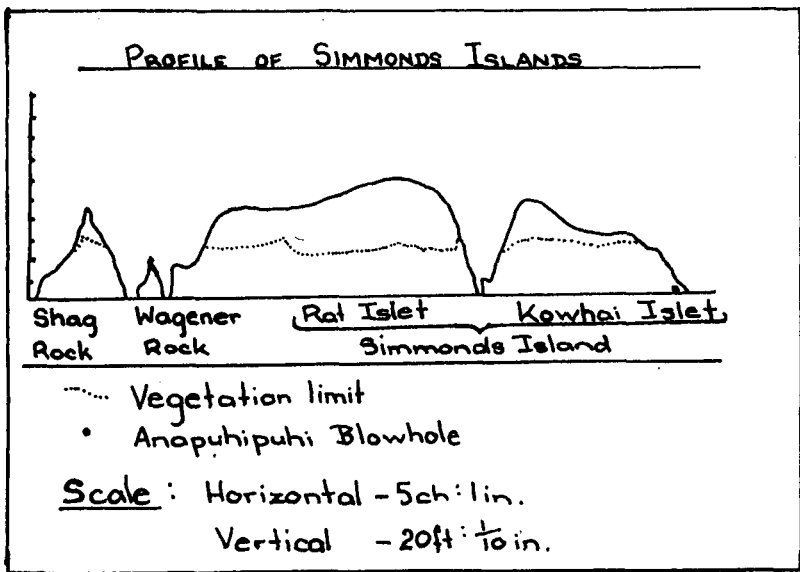 PROFILE OF SIMMONDS ISLANDS
Shag Wagener Rat Islet Kowhai Islet
Rock Rock Simmonds Island
Vegetation limit
• Anapuhipuhi Blowhole
Scale: Horizontal - 5ch : 1in.
Vertical - 20ft : 1/10 in.